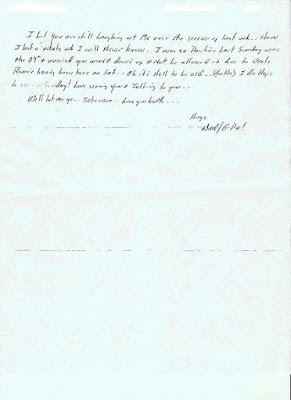 I bet you are still laughing at me over the screw up last wk.. How
I lost a whole wk I will never know.. I was so positive last Sunday was
the 29th & worried you would drive up & not be allowed in due to
having been here on Sat.. Oh it's Hell to be old.. I do Hope
to see Sunday! Love seeing you & talking to you..
Well let me go.. Take care.. Love you both...
Hugs